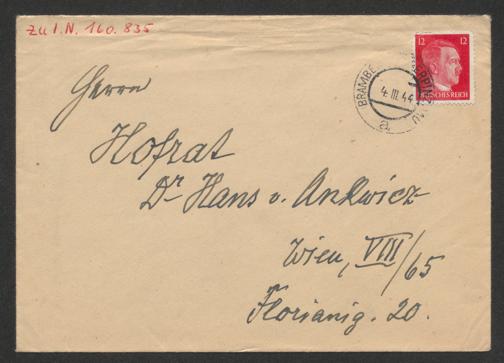 Zu I.N. 160.835
12 12
DEUTSCHES REICH
4.III.44
a
Herrn
Hofrat
Dr Hans v. Ankwicz
Wien, VIII/65
Florianig. 20.